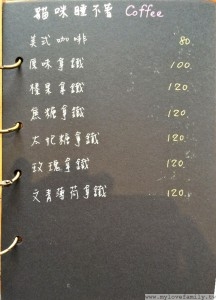 貓咪睡不著 Coffee
美式咖啡 80.
原味拿鐵 100.
榛果拿鐵 120.
焦糖拿鐵 120.
太妃糖拿鐵 120.
玫瑰拿鐵 120.
文青薄荷拿鐵 120.
www.mylovefamily.tw